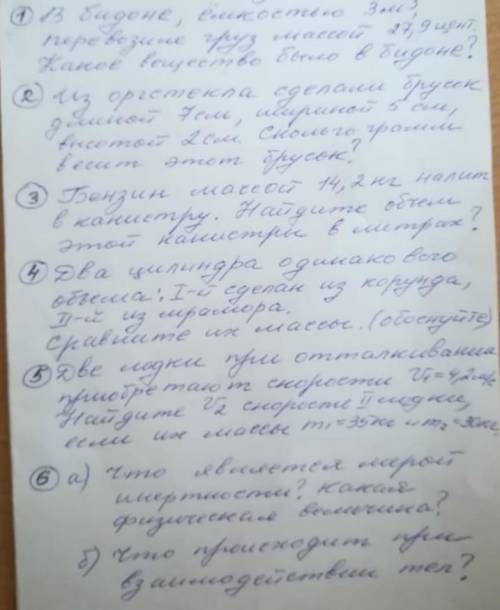 ① В бидоне, ёмкостью 3м³,
перевозили груз массой 27,9 цент.
Какое вещество было в бидоне?
② Из оргстекла сделали брусок
длиной 7см, шириной 5 см,
высотой 2см. Сколько грамм
весит этот брусок?
③ Бензин массой 14,2 кг налит
в канистру. Найдите объем
этой канистры в литрах?
④ Два цилиндра одинакового
объёма: I-й сделан из корунда,
II-й из мрамора.
Сравните их массы. (обоснуйте)
⑤ Две лодки при отталкивании
приобретают скорости V₁=4,2
Найдите V₂ скорость II лодки,
если их массы m₁=35кг и m₂=
⑥ а) Что является мерой
инертности? Какая
физическая величина?
б) Что происходит при
взаимодействии тел?